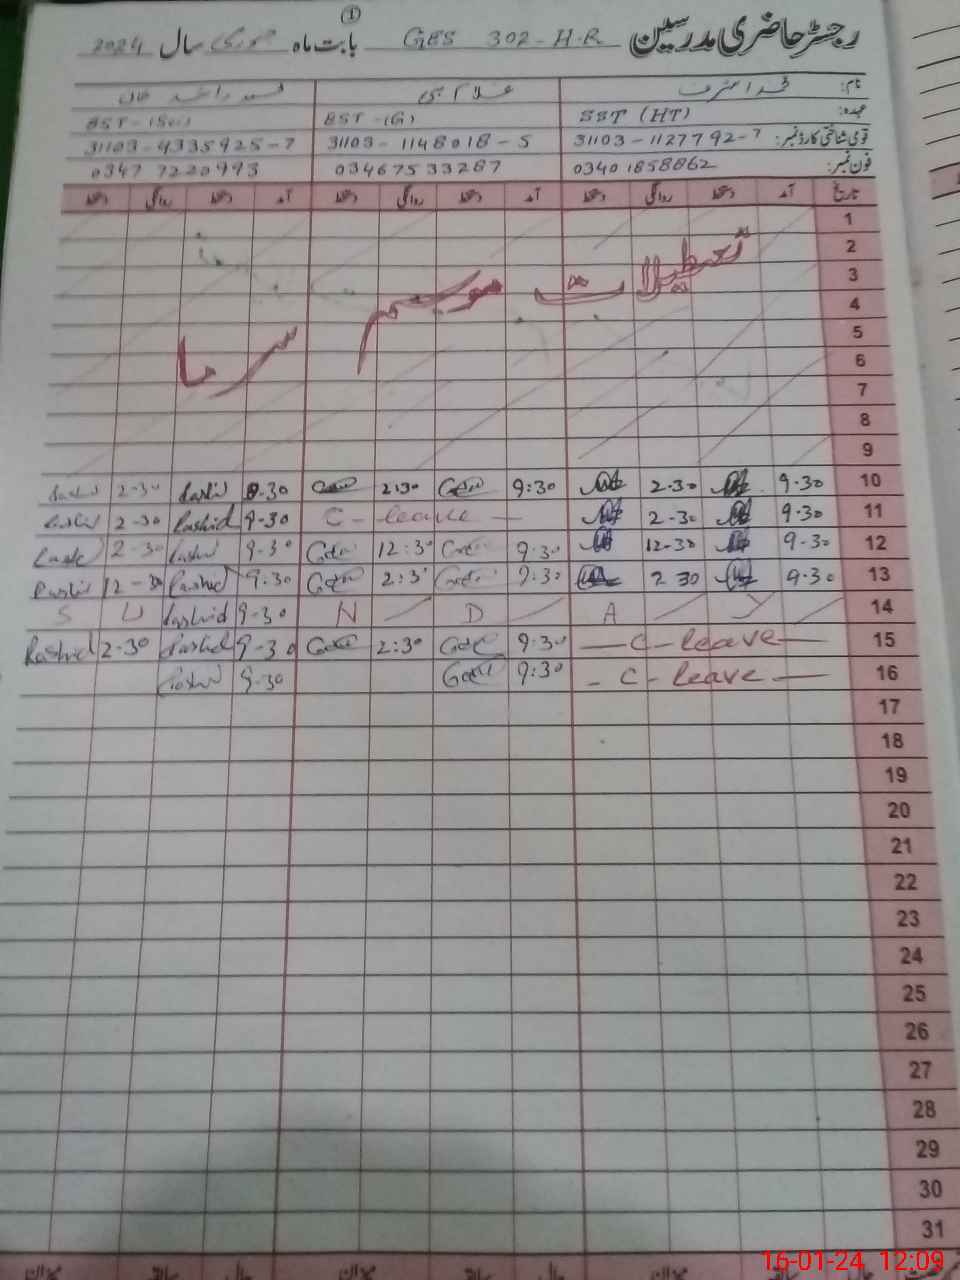 ①
رجسٹر حاضری مدرسین GES 302-H-R بابت ماہ جنوری سال 2024
نام: محمد اشرف غلام نبی محمد راشد خان
عہدہ: SST (HT) EST-(G) EST-(Sci)
قومی شناختی کارڈ نمبر: 31103-1127792-7 31103-1148018-5 31103-4335925-7
فون نمبر: 03401858862 03467533287 0347 7220993
تاریخ آمد دستخط روانگی دستخط آمد دستخط روانگی دستخط آمد دستخط روانگی دستخط
1
2
3
4
5
6
7
8
9
تعطیلات موسم سرما
10 9.30 2.30 9:30 2:30 9.30 Rashid 2.30 Rashid
11 9.30 2.30 C-leave 9.30 Rashid 2.30 Rashid
12 9.30 12.30 9:30 12:30 9.30 Rashid 2.30
13 9.30 2.30 9:30 2:3 9.30 Rashid 12-30 Rashid
14 S U Rashid 9-30 N D A Y
15 C-leave 9:30 2:30 9-30 Rashid 2.30 Rashid
16 C-leave 9:30 9.30 Rashid
17
18
19
20
21
22
23
24
25
26
27
28
29
30
31
16-01-24 12:09